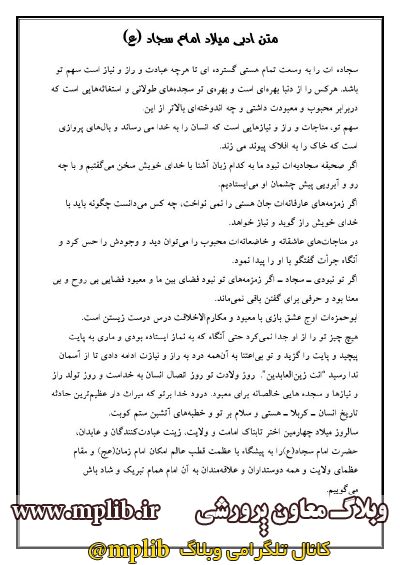 متن ادبی میلاد امام سجاد (ع)
سجاده ات را به وسعت تمام هستی گسترده ای تا هرچه عبادت و راز و نیاز است سهم تو
باشد. هرکس را از دنیا بهره‌ای است و بهره‌ی تو سجده‌های طولانی و استغاثه‌هایی است که
دربرابر محبوب و معبودت داشتی و چه اندوخته‌ای بالاتر از این.
سهم تو، مناجات و راز و نیازهایی است که انسان را به خدا می رساند و بال‌های پروازی
است که خاک را به افلاک پیوند می زند.
اگر صحیفه سجادیه‌ات نبود ما به کدام زبان آشنا با خدای خویش سخن می‌گفتیم و با چه
رو و آبرویی پیش چشمان او می‌ایستادیم.
اگر زمزمه‌های عارفانه‌ات جان هستی را نمی نواخت، چه کس می‌دانست چگونه باید با
خدای خویش راز گوید و نیاز خواهد.
در مناجات‌های عاشقانه و خاضعانه‌ات محبوب را می‌توان دید و وجودش را حس کرد و
آنگاه جرأت گفتگو با او را پیدا نمود.
اگر تو نبودی ــ سجاد ــ اگر زمزمه‌های تو نبود فضای بین ما و معبود فضایی بی روح و بی
معنا بود و حرفی برای گفتن باقی نمی‌ماند.
ابوحمزه‌ات اوج عشق بازی با معبود و مکارم‌الاخلاقت درس درست زیستن است.
هیچ چیز تو را از او جدا نمی‌کرد حتی آنگاه که به نماز ایستاده بودی و ماری به پایت
پیچید و پایت را گزید و تو بی‌اعتنا به آن‌همه درد به راز و نیازت ادامه دادی تا از آسمان
ندا رسید "انت زین‌العابدین". روز ولادت تو روز اتصال انسان به خداست و روز تولد راز
و نیازها و سجده هایی خالصانه برای معبود. درود خدا برتو که میراث دار عظیم‌ترین حادثه
تاریخ انسان ــ کربلا ــ هستی و سلام بر تو و خطبه‌های آتشین ستم کوبت.
سالروز میلاد چهارمین اختر تابناک امامت و ولایت، زینت عبادت‌کنندگان و عابدان،
حضرت امام سجاد(ع)را به پیشگاه با عظمت قطب عالم امکان امام زمان(عج) و مقام
عظمای ولایت و همه دوستداران و علاقه‌مندان به آن امام همام تبریک و شاد باش
می‌گوییم.
وبلاگ معاون پرورشی www.mplib.ir www.mplib.ir
کانال تلگرامی وبلاگ @mplib